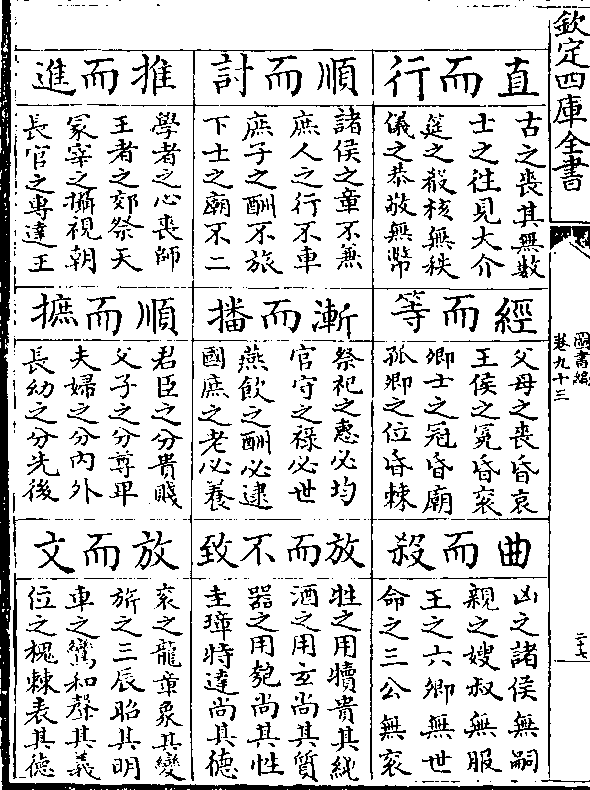 欽定四庫全書
圖書編
卷九十三
二十七
直而行
古之喪其無數
士之往見大介
筵之殽核無秩
儀之恭敬無幣
順而討
諸侯之章不兼
庶人之行不車
庶子之酬不旅
下士之廟不二
推而進
學者之心喪師
王者之郊祭天
冡宰之攝視朝
長官之專達王
經而等
父母之喪昏哀
王侯之冕昏衮
卿士之冠昏廟
孤卿之位昏棘
漸而播
祭祀之惠必均
官守之祿必世
燕飲之酬必逮
國庶之老必養
順而摭
君臣之分貴賤
父子之分尊卑
夫婦之分內外
長幼之分先後
曲而殺
凶之諸侯無嗣
親之嫂叔無服
王之六卿無世
命之三公無衮
放而不致
牲之用犢貴其純
酒之用玄尚其質
器之用匏尚其性
圭璋特達尚其德
放而文
衮之龍章象其變
旂之三辰昭其明
車之鸞和聲其義
位之槐棘表其德